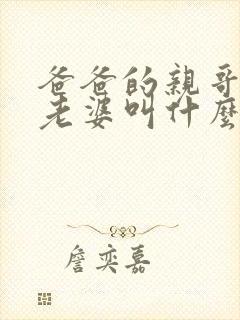 爸爸的親哥
老婆叫什麼
詹奕嘉